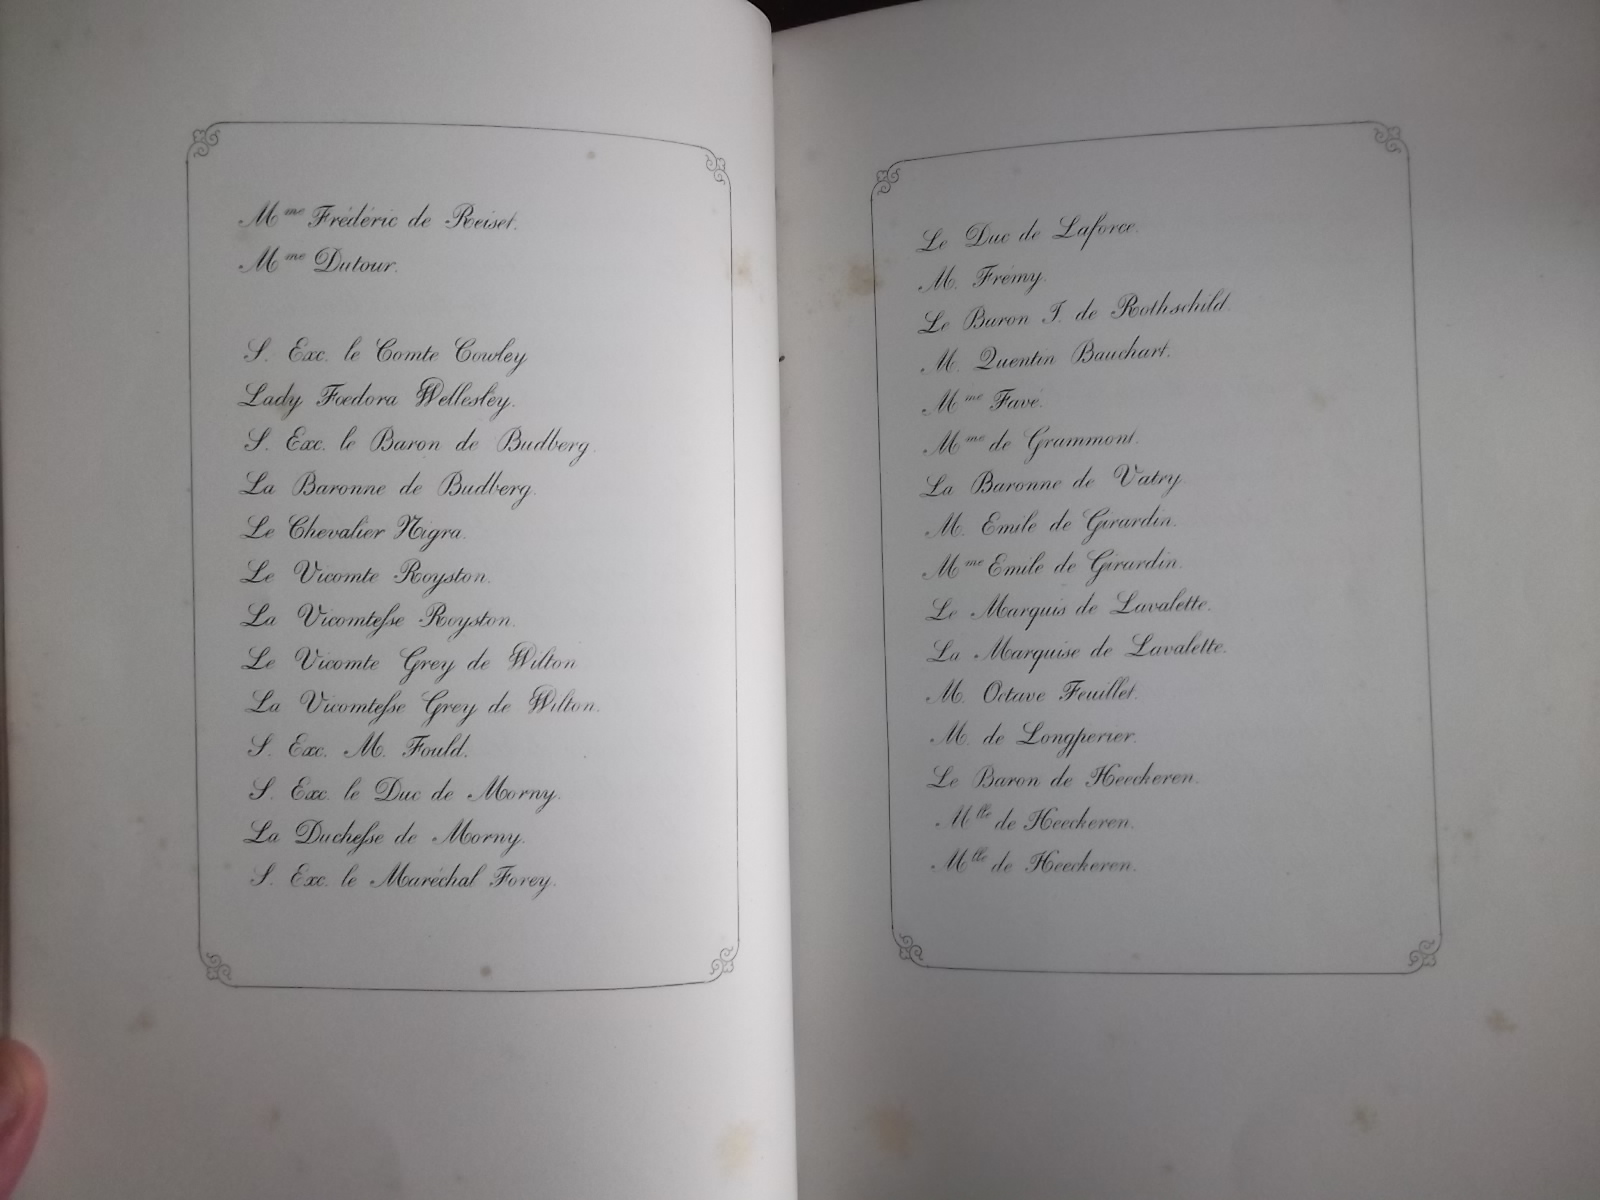 Mme Frédéric de Reiset.
Mme Dutour.
S. Exc. le Comte Cowley
Lady Fœdora Wellesley.
S. Exc. le Baron de Budberg.
La Baronne de Budberg.
Le Chevalier Nigra.
Le Vicomte Royston.
La Vicomtesse Royston.
Le Vicomte Grey de Wilton
La Vicomtesse Grey de Wilton.
S. Exc. M. Fould.
S. Exc. le Duc de Morny.
La Duchesse de Morny.
S. Exc. le Maréchal Forey.
Le Duc de Laforce.
M. Frémy.
Le Baron J. de Rothschild.
M. Quentin Bauchart.
Mme Favé.
Mme de Grammont.
La Baronne de Vatry.
M. Emile de Girardin.
Mme Emile de Girardin.
Le Marquis de Lavalette.
La Marquise de Lavalette.
M. Octave Feuillet.
M. de Longperier.
Le Baron de Heeckeren.
Mlle de Heeckeren.
Mlle de Heeckeren.